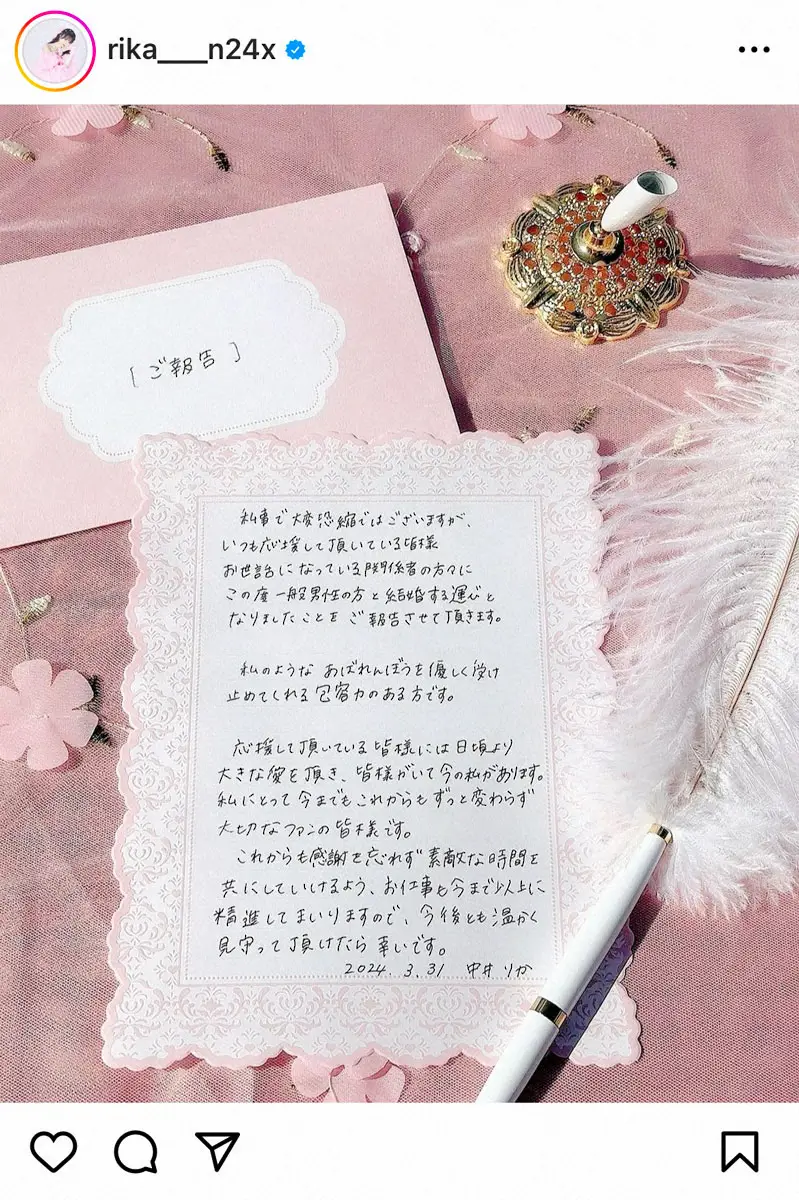 rika___n24x
[ご報告]
私事で大変恐縮ではございますが、
いつも応援して頂いている皆様
お世話になっている関係者の方々に
この度一般男性の方と結婚する運びと
なりましたことをご報告させて頂きます。
私のような あばれんぼうを優しく受け
止めてくれる包容力のある方です。
応援して頂いている皆様には日頃より
大きな愛を頂き、皆様がいて今の私があります。
私にとって今までもこれからもずっと変わらず
大切なファンの皆様です。
これからも感謝を忘れず素敵な時間を
共にしていけるよう、お仕事も今まで以上に
精進してまいりますので、今後とも温かく
見守って頂けたら幸いです。
2024. 3. 31 中井りか